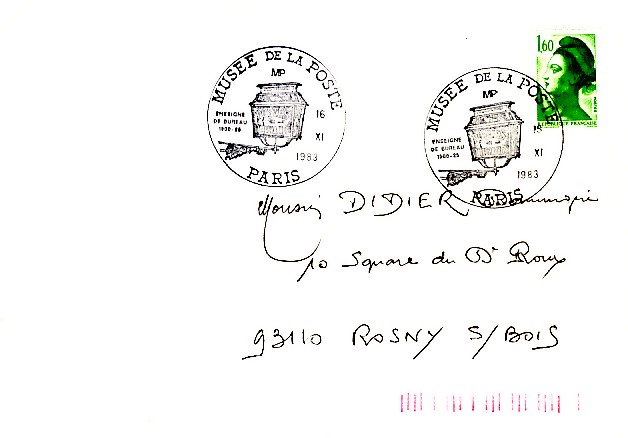 MUSEE DE LA POSTE
MP
ENSEIGNE
DE BUREAU
1900-25
16
XI
1983
PARIS
MUSEE DE LA POSTE
MP
ENSEIGNE
DE BUREAU
1900-25
16
XI
1983
PARIS
1,60
REPUBLIQUE FRANÇAISE
Monsieur DIDIER
10 Square du Dr Roux
93110 ROSNY S/BOIS